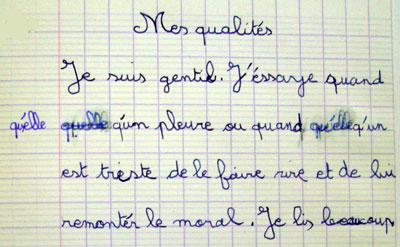 Mes qualités
Je suis gentil. J'éssaye quand
qu'elle quelle qu'un pleure ou quand qu'elle qu'un
est triste de le faire rire et de lui
remontér le moral. Je lis beaucoup